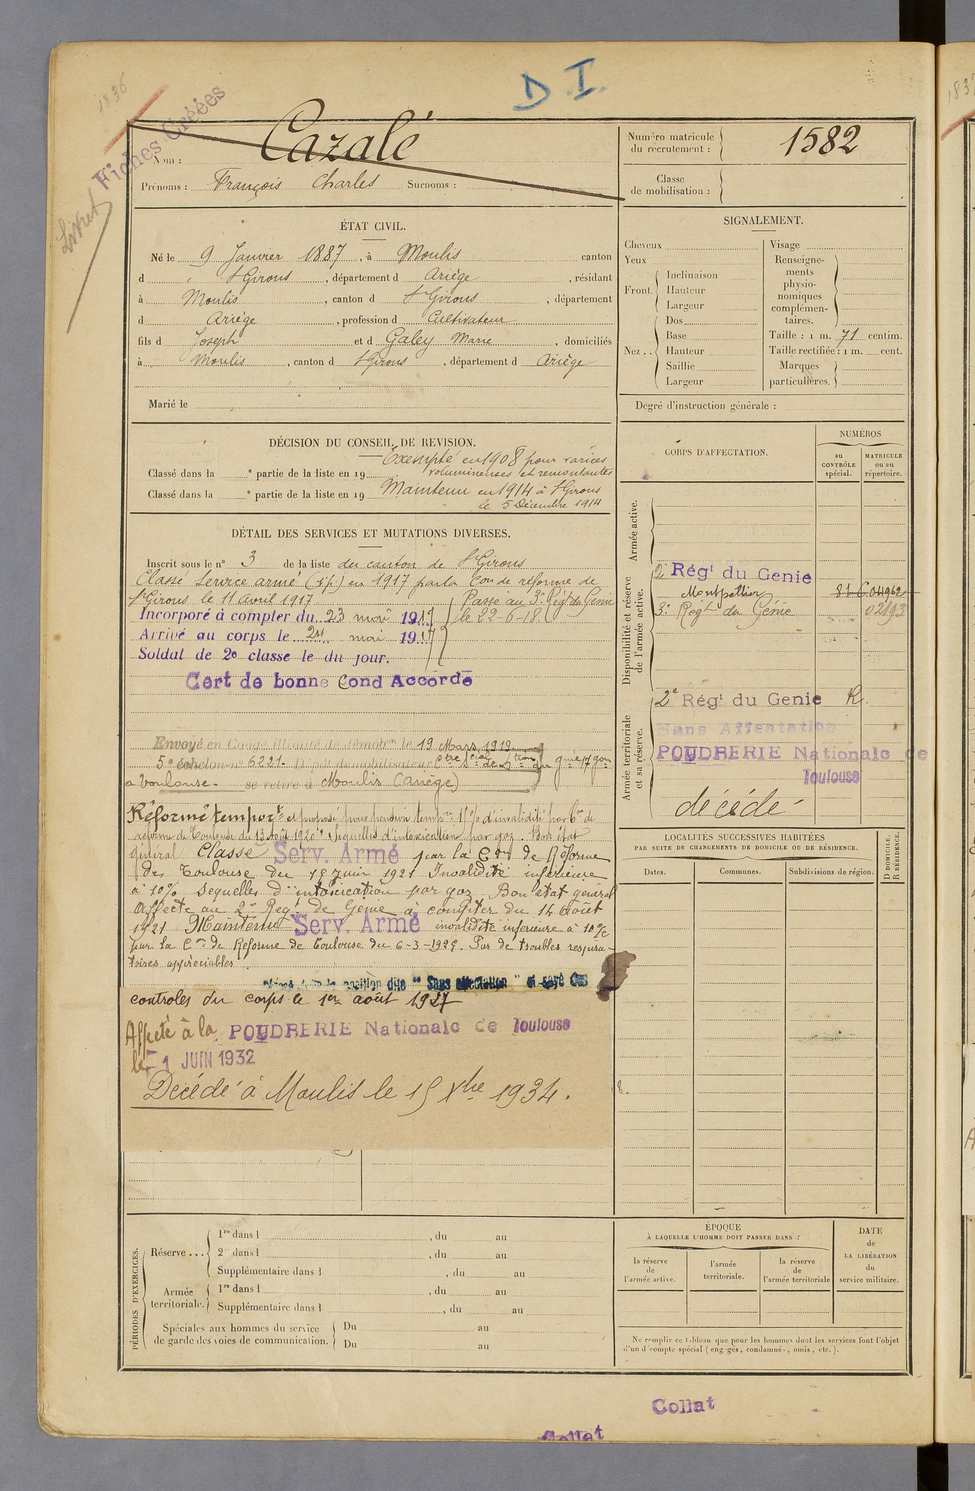 D I.
1836
Fiches Créées
Livret
Nom : Cazalé
Prénoms : François Charles Surnoms :
Numéro matricule du recrutement : 1582
Classe de mobilisation :
ÉTAT CIVIL.
Né le 9 Janvier 1887, à Moulis canton
d St Girons, département d Ariège, résidant
à Moulis, canton d St Girons, département
d Ariège, profession d Cultivateur
fils d Joseph et d Galey Marie, domiciliés
à Moulis, canton d St Girons, département d Ariège
Marié le
SIGNALEMENT.
Cheveux
Yeux
Front
Inclinaison
Hauteur
Largeur
Nez
Dos
Base
Hauteur
Saillie
Largeur
Visage
Renseigne-
ments
physio-
nomiques
complémen-
taires.
Taille : 1 m. 71 centim.
Taille rectifiée : 1 m. cent.
Marques
particulières.
Degré d'instruction générale :
DÉCISION DU CONSEIL DE REVISION.
Exempté en 1908 pour varices
Classé dans la e partie de la liste en 19 volumineuses et remontantes
Classé dans la e partie de la liste en 19 Maintenu en 1914 à St Girons
le 5 Décembre 1914
DÉTAIL DES SERVICES ET MUTATIONS DIVERSES.
Inscrit sous le n° 3 de la liste du canton de St Girons
Classé Service armé (s.p.) en 1917 par la Con de réforme de
St Girons le 11 avril 1917
Passé au 3e Régt du Génie
le 22-6-18
Incorporé à compter du 23 mai 1917
Arrivé au corps le 24 mai 1917
Soldat de 2e classe le du jour.
Cert de bonne Cond Accordé
Envoyé en Congé illimité de démobon le 19 Mars 1919
5e échelon n° 6221. Dépôt démobilisateur
à Toulouse. se retire à Moulis (Ariège)
Réformé tempore et proposé pour pension tempre d'invalidité par Con de
réforme de Toulouse du 13 Août 1920 "Sequelles d'intoxication par gaz. Bon état
général Classé Serv. Armé par la Con de Réforme
de Toulouse du 18 Juin 1921 Invalidité inférieure
à 10% Sequelles d'intoxication par gaz. Bon état général
Affecté au 2e Régt de Génie à compter du 14 Août
1921 Maintenu Serv. Armé invalidité inférieure à 10%
par la Con de Réforme de Toulouse du 6-3-1929. Pas de troubles respira-
toires appréciables
position dite "Sans affectation" et rayé des
controles du corps le 1er août 1927
Affecté à la POUDRERIE Nationale de Toulouse
le 1 JUIN 1932
Décédé à Moulis le 15 Xbre 1934.
CORPS D'AFFECTATION.
NUMÉROS
au CONTRÔLE spécial.
MATRICULE ou au répertoire.
Armée active.
Disponibilité et réserve de l'armée active.
2e Régt du Genie
Montpellier
3e Régt du Génie 02193
Armée territoriale et sa réserve.
2e Régt du Genie R.
Sans Affectation
POUDRERIE Nationale de
Toulouse
décédé -
LOCALITÉS SUCCESSIVES HABITÉES
PAR SUITE DE CHANGEMENTS DE DOMICILE OU DE RÉSIDENCE.
Dates. Communes. Subdivisions de région.
D DOMICILE.
R RÉSIDENCE.
PÉRIODES D'EXERCICES.
Réserve ...
1re dans l , du au
2e dans l , du au
Supplémentaire dans l , du au
Armée territoriale.
1re dans l , du au
Supplémentaire dans l , du au
Spéciales aux hommes du service
de garde des voies de communication.
Du au
Du au
ÉPOQUE
À LAQUELLE L'HOMME DOIT PASSER DANS :
la réserve de l'armée active.
l'armée territoriale.
la réserve de l'armée territoriale
DATE de LA LIBÉRATION du service militaire.
Ne remplir ce tableau que pour les hommes dont les services font l'objet
d'un décompte spécial (engagés, condamnés, omis, etc.).
Collat
Collat